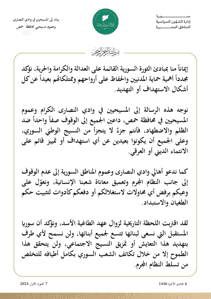 إدارة الشؤون السياسية
بيان إلى المسيحيين في وادي النصارى
وعموم مسيحيي محافظة حمص
إيماناً منا بمبادئ الثورة السورية القائمة على العدالة والكرامة والحرية، نؤكد
مجدداً أهمية حماية المدنيين والحفاظ على أرواحهم وممتلكاتهم بعيداً عن كل
أشكال الاستهداف أو التهديد.
نوجه هذه الرسالة إلى المسيحيين في وادي النصارى الكرام وعموم
المسيحيين في محافظة حمص، داعين الجميع إلى الوقوف صفاً واحداً ضد
الظلم والاضطهاد، فأنتم جزء لا يتجزأ من النسيج الوطني السوري،
وعلى الجميع أن يكونوا بعيدين عن أي استهداف أو تمييز قائم على
الانتماء الديني أو العرقي.
كما ندعو أهالي وادي النصارى وعموم المناطق السورية إلى عدم الوقوف
إلى جانب النظام المجرم وتعميق معاناة شعبنا الإنسانية، ونعوّل على
وعيكم برفض أي محاولات لاستغلالكم أو دفعكم كأدوات لتثبيت حكم
الطغيان والاستبداد.
لقد اقتربت اللحظة التاريخية لزوال عهد الطاغية الأسد، ونؤكد أن سوريا
المستقبل التي نسعى لبنائها تتسع لجميع أبنائها، ولن نسمح لأي طرف
بتهديد هذا التعايش أو تمزيق النسيج الاجتماعي، ولن يتحقق هذا
الطموح إلا من خلال تكاتف الشعب السوري بكامل أطيافه للتخلص
من تسلط النظام المجرم.